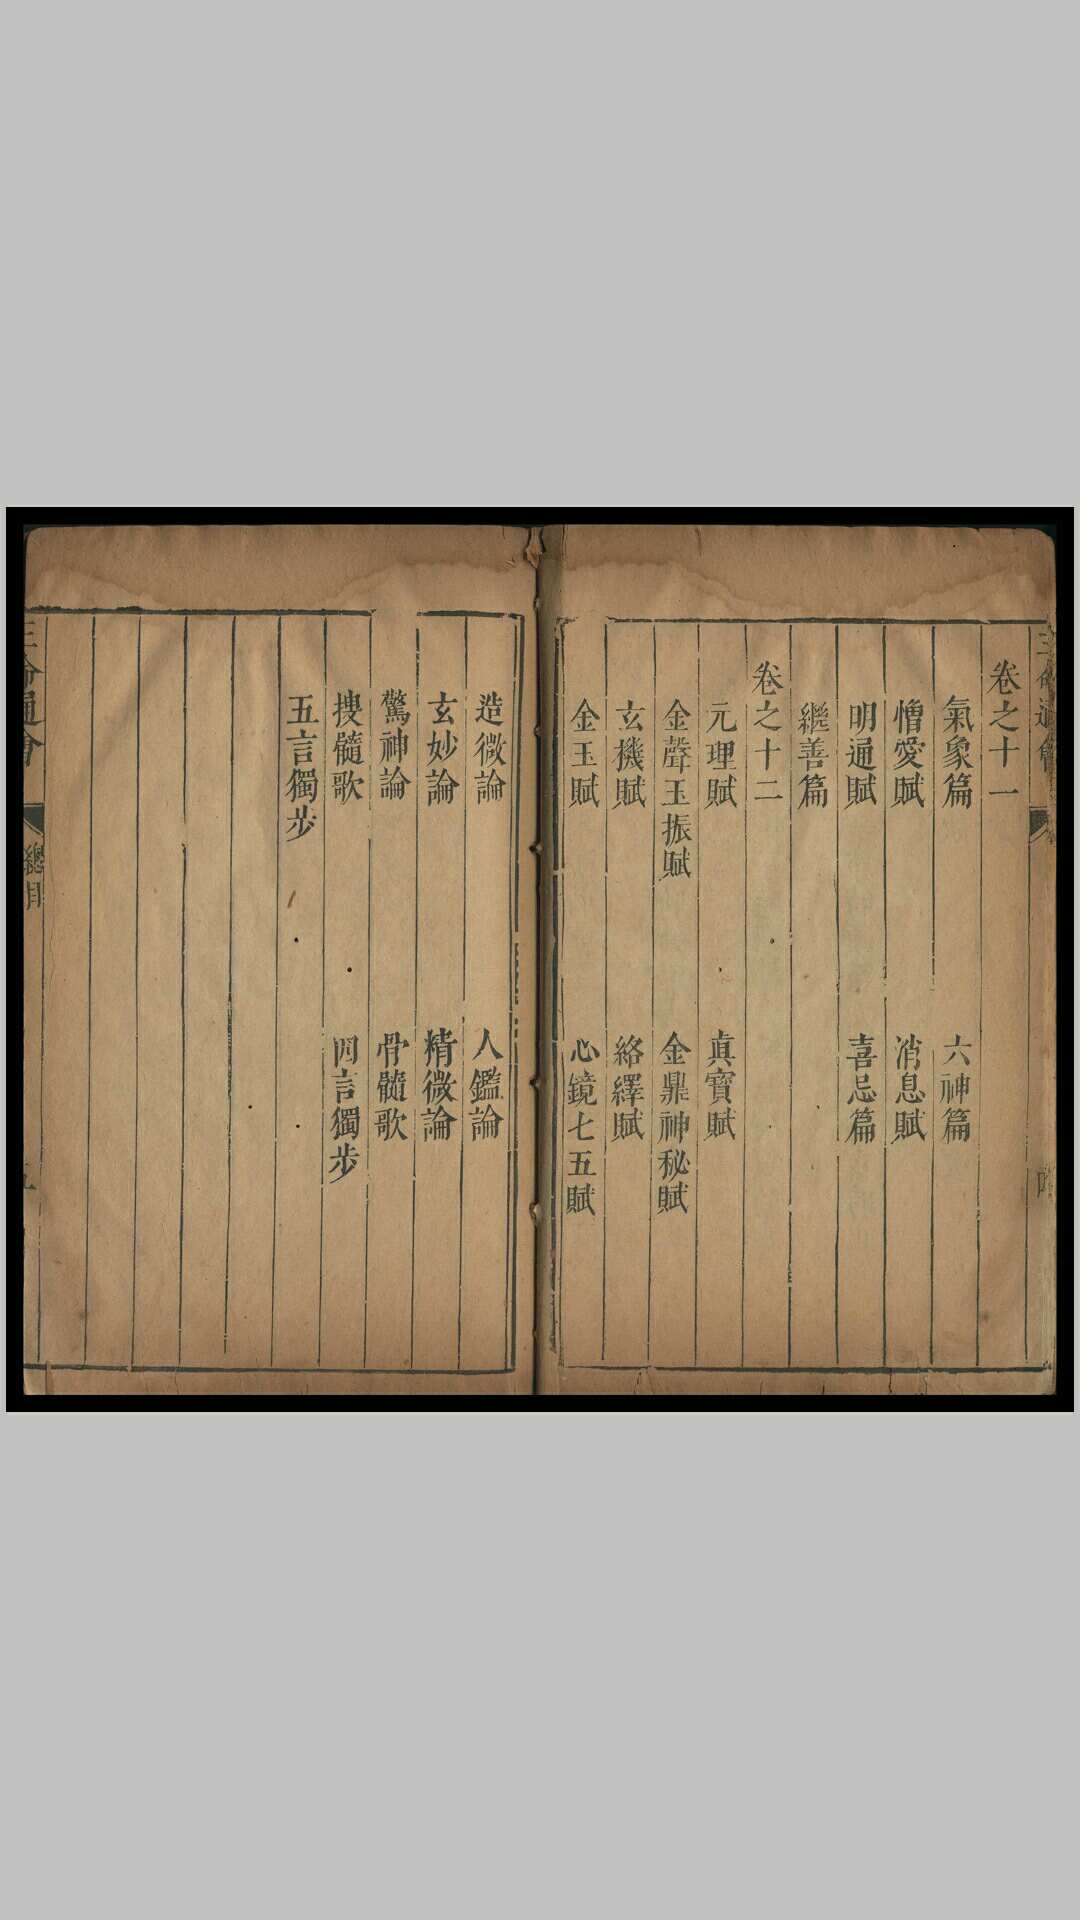 卷之十一
氣象篇　六神篇
憎愛賦　消息賦
明通賦　喜忌篇
繼善篇
卷之十二
元理賦　眞寶賦
金聲玉振賦　金鼎神秘賦
玄機賦　絡繹賦
金玉賦　心鏡七五賦
造微論　人鑑論
玄妙論　精微論
驚神論　骨髓歌
搜髓歌　四言獨步
五言獨步
三命通會　總目